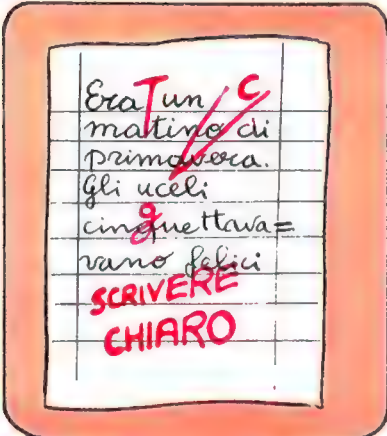 Era T un C
matino di
primavera.
Gli uceli
g
cinquettava=
vano felici
SCRIVERE
CHIARO